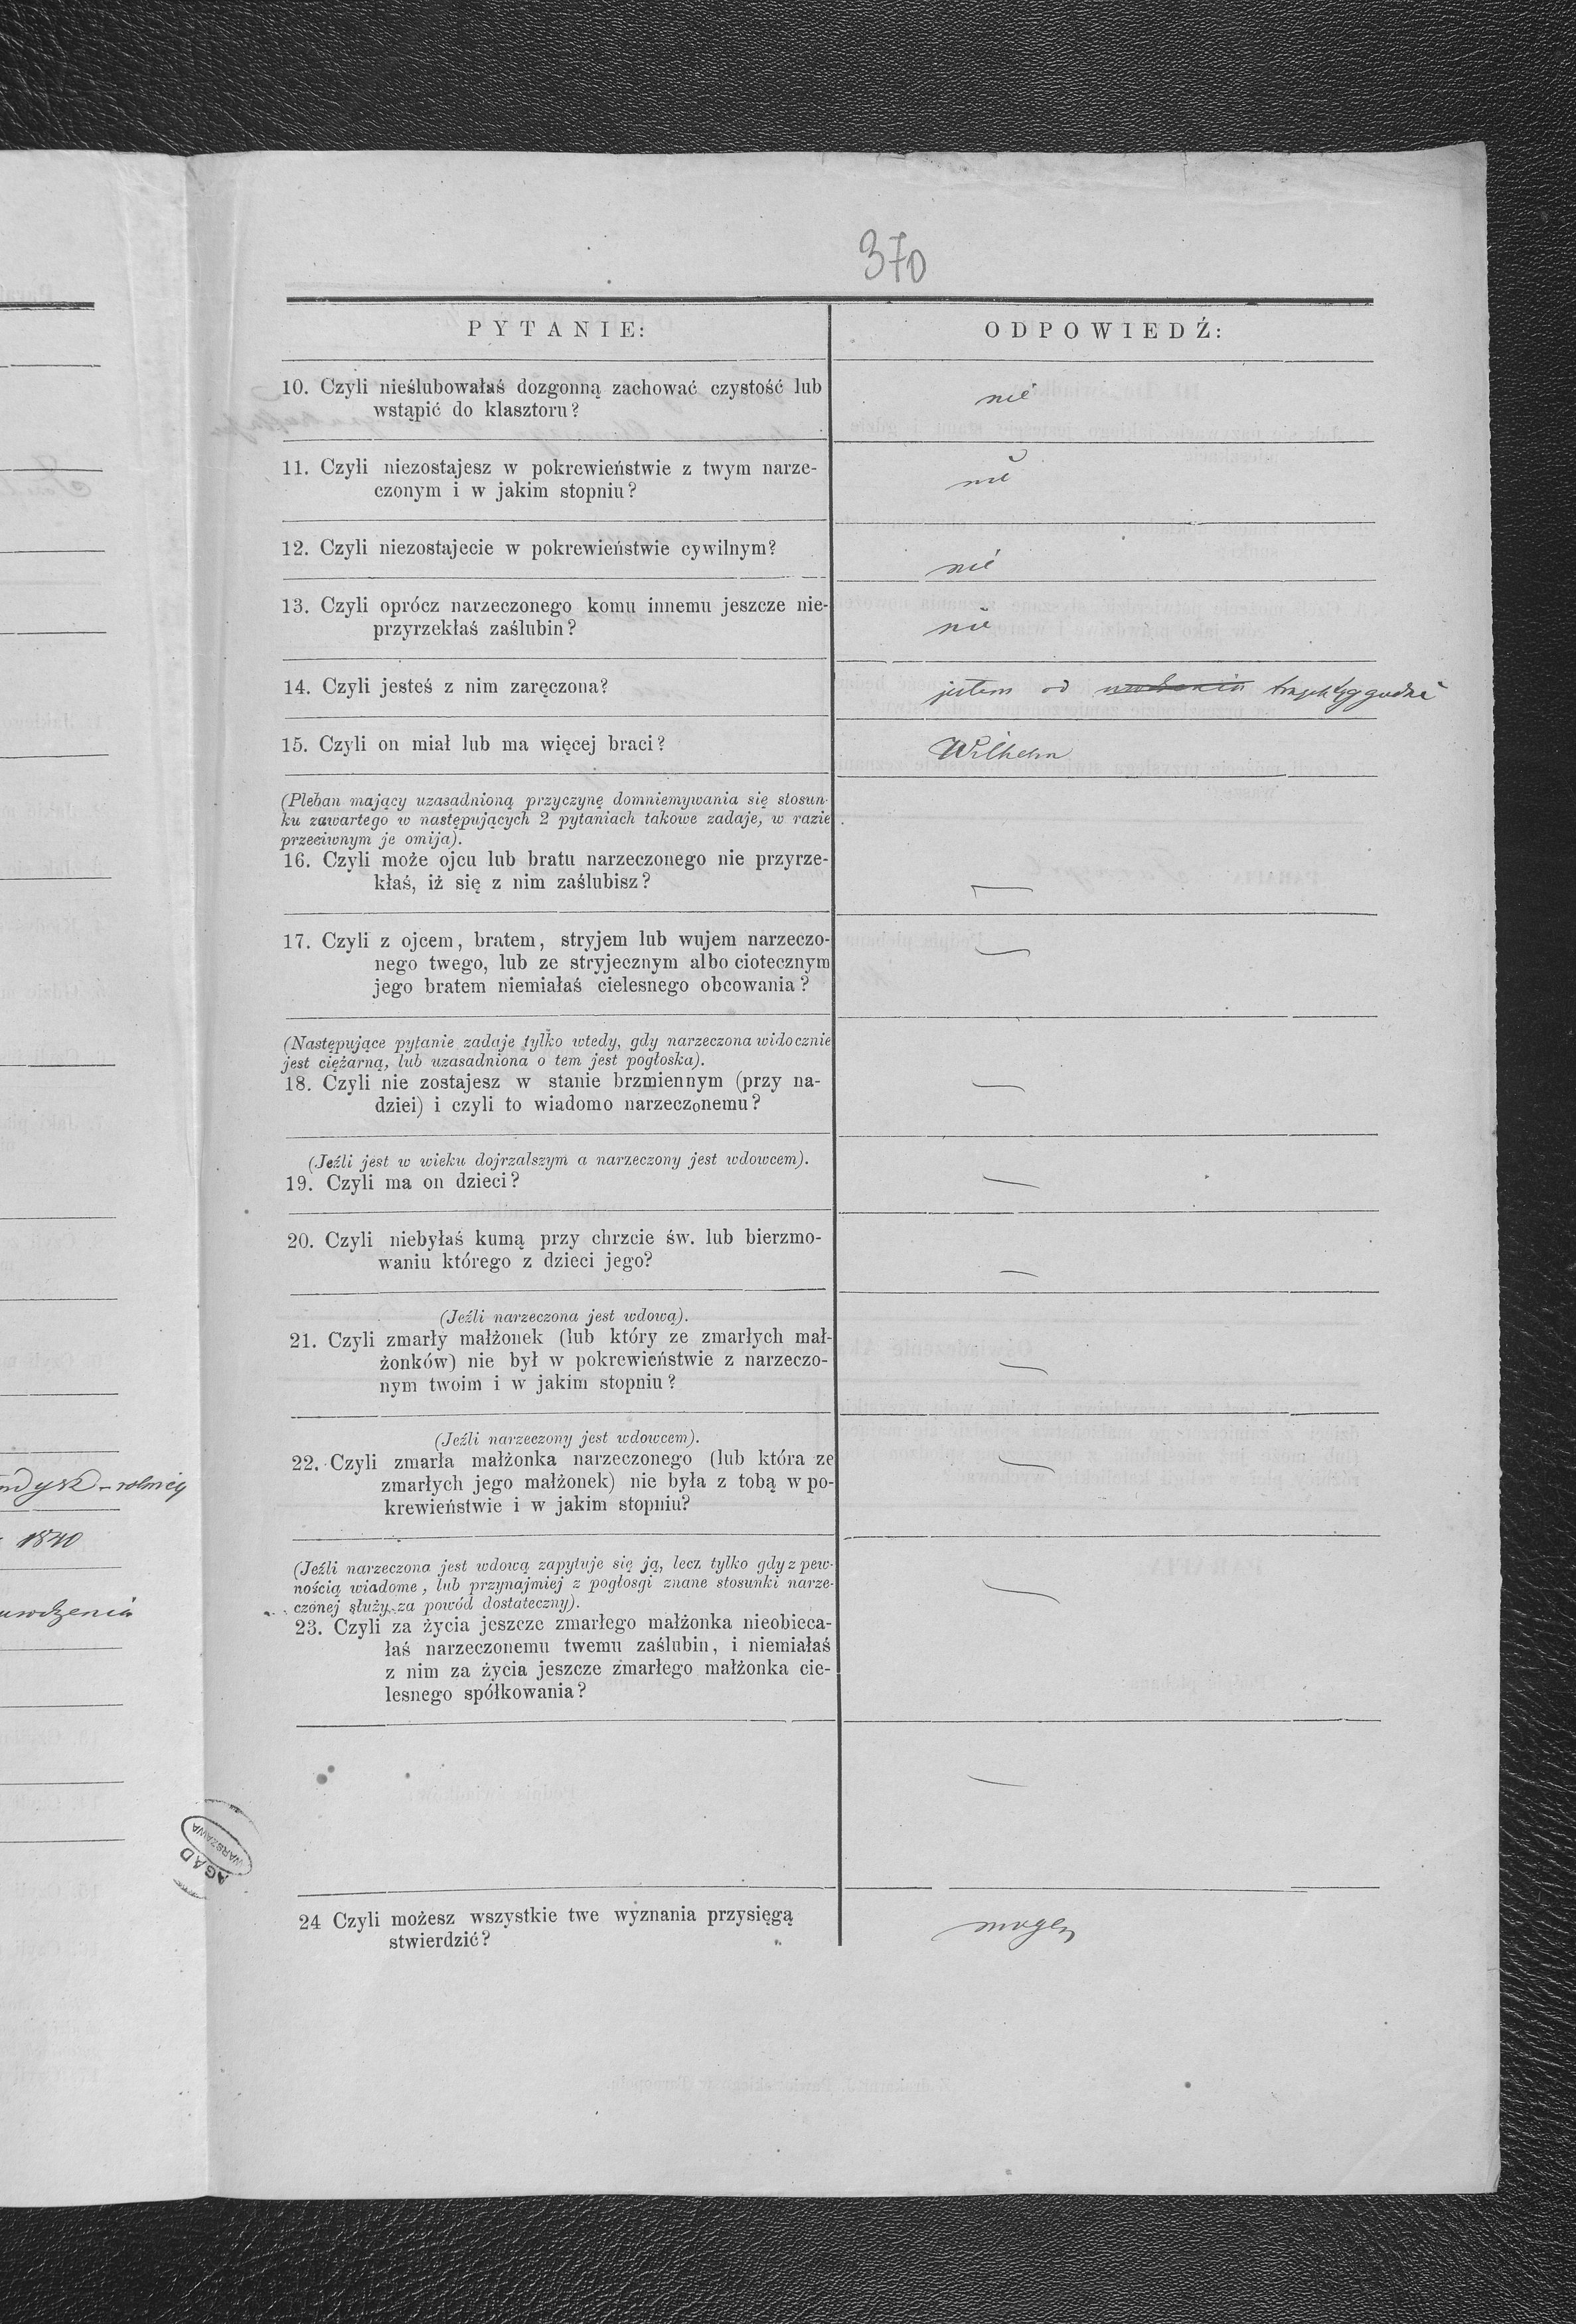 370
PYTANIE:
ODPOWIEDŹ:
10. Czyli nieślubowałaś dozgonną zachować czystość lub
wstąpić do klasztoru?
nié
11. Czyli niezostajesz w pokrewieństwie z twym narze-
czonym i w jakim stopniu?
nié
12. Czyli niezostajecie w pokrewieństwie cywilnym?
nié
13. Czyli oprócz narzeczonego komu innemu jeszcze nie-
przyrzekłaś zaślubin?
nié
14. Czyli jesteś z nim zaręczona?
jestem od
15. Czyli on miał lub ma więcej braci?
Wilhelm
(Pleban mający uzasadnioną przyczynę domniemywania się stosun-
ku zawartego w następujących 2 pytaniach takowe zadaje, w razie
przeciwnym je omija).
16. Czyli może ojcu lub bratu narzeczonego nie przyrze-
kłaś, iż się z nim zaślubisz?
—
17. Czyli z ojcem, bratem, stryjem lub wujem narzeczo-
nego twego, lub ze stryjecznym albo ciotecznym
jego bratem niemiałaś cielesnego obcowania?
—
(Następujące pytanie zadaje tylko wtedy, gdy narzeczona widocznie
jest ciężarną, lub uzasadniona o tem jest pogłoska).
18. Czyli nie zostajesz w stanie brzmiennym (przy na-
dziei) i czyli to wiadomo narzeczonemu?
—
(Jeźli jest w wieku dojrzalszym a narzeczony jest wdowcem).
19. Czyli ma on dzieci?
—
20. Czyli niebyłaś kumą przy chrzcie św. lub bierzmo-
waniu którego z dzieci jego?
—
(Jeźli narzeczona jest wdową).
21. Czyli zmarły małżonek (lub który ze zmarłych mał-
żonków) nie był w pokrewieństwie z narzeczo-
nym twoim i w jakim stopniu?
—
(Jeźli narzeczony jest wdowcem).
22. Czyli zmarła małżonka narzeczonego (lub która ze
zmarłych jego małżonek) nie była z tobą w po-
krewieństwie i w jakim stopniu?
—
(Jeźli narzeczona jest wdową zapytuje się ją, lecz tylko gdy z pew-
nością wiadome, lub przynajmiej z pogłosgi znane stosunki narze-
czonej służy za powód dostateczny).
23. Czyli za życia jeszcze zmarłego małżonka nieobieca-
łaś narzeczonemu twemu zaślubin, i niemiałaś
z nim za życia jeszcze zmarłego małżonka cie-
lesnego spółkowania?
—
—
24 Czyli możesz wszystkie twe wyznania przysięgą
stwierdzić?
mogę
1840
AGAD
WARSZAWA